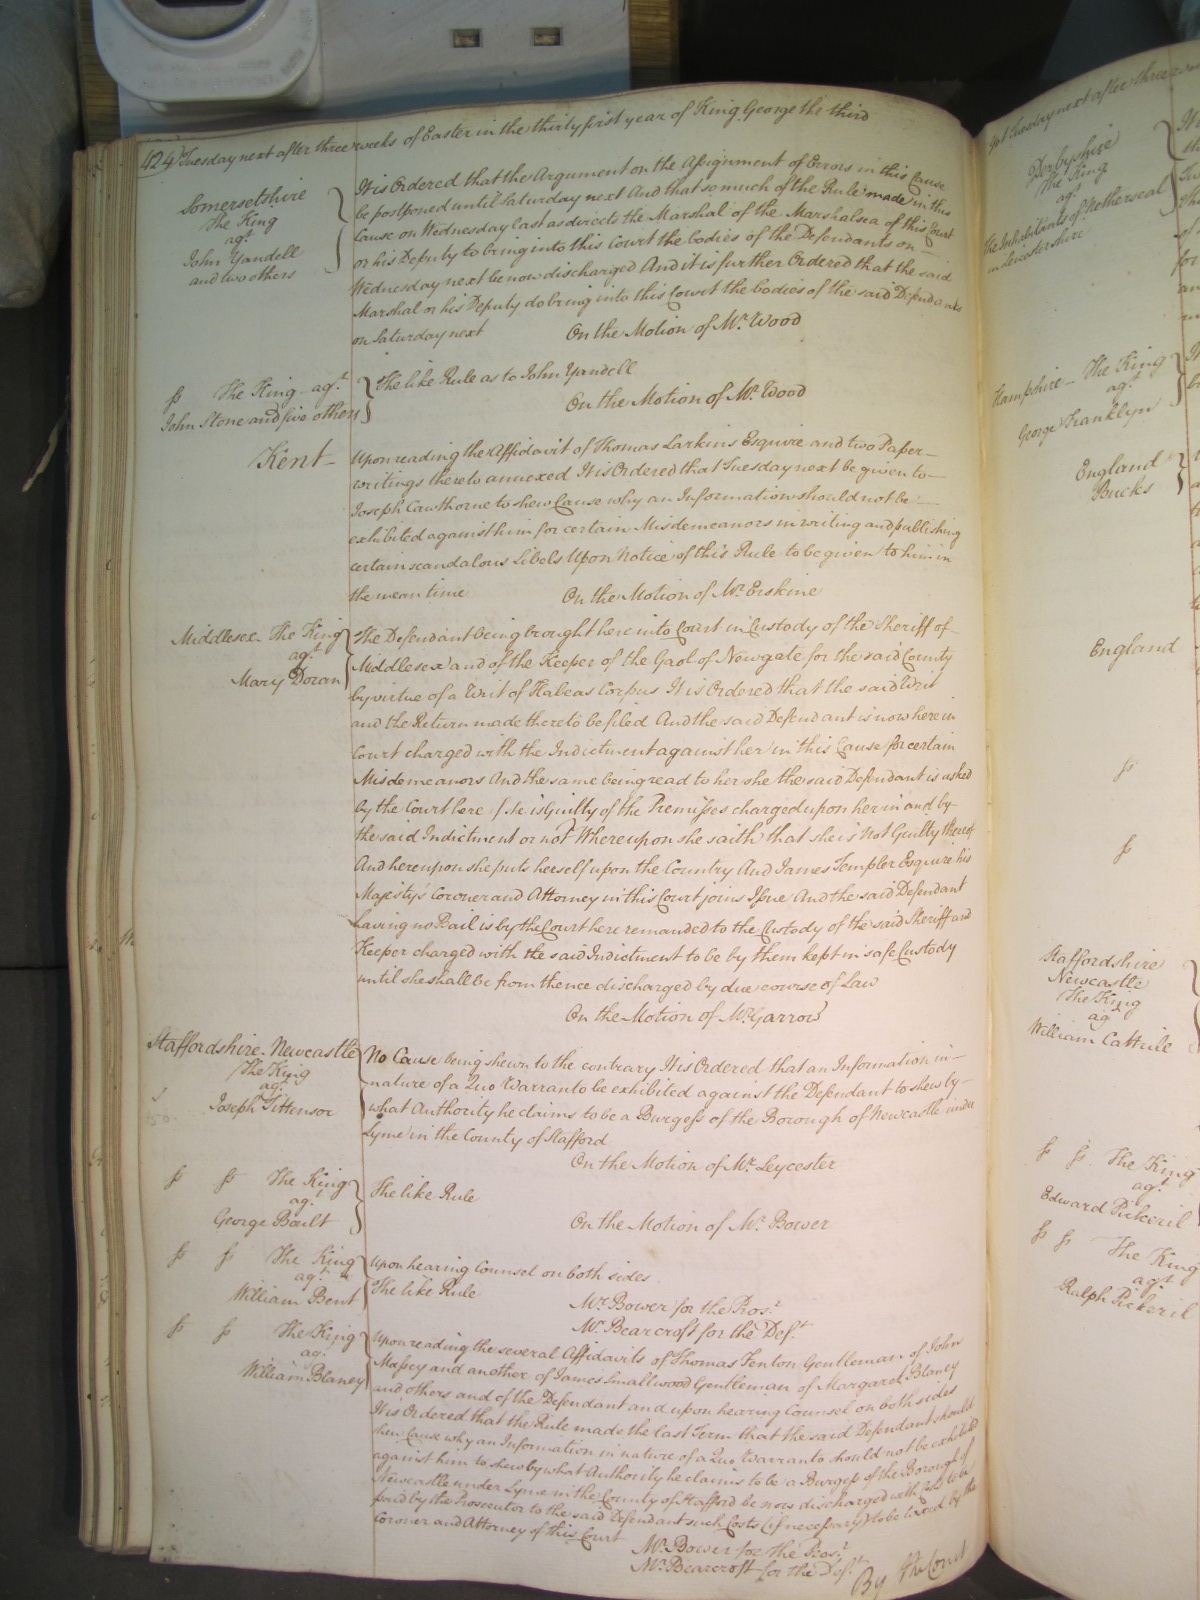 424 Tuesday next after three weeks of Easter in the thirty first year of King George the third
Somersetshire
The King
agt
John Yandell
and two others
It is Ordered that the Argument on the Assignment of Errors in this Cause
be postponed until Saturday next And that so much of the Rule made in this
Cause on Wednesday last as directs the Marshal of the Marshalsea of this Court
or his Deputy to bring into this Court the bodies of the Defendants on
Wednesday next be now discharged And it is further Ordered that the said
Marshal or his Deputy do bring into this Court the bodies of the said Defendants
on Saturday next
On the Motion of Mr. Wood
The King agt.
John Stone and five others
The like Rule as to John Yandell
On the Motion of Mr. Wood
Kent
Upon reading the Affidavit of Thomas Larkins Esquire and two Paper
writings thereto annexed It is Ordered that Tuesday next be given to
Joseph Cawthorne to shew Cause why an Information should not be
exhibited against him for certain Misdemeanors in writing and publishing
certain scandalous Libels Upon Notice of this Rule to be given to him in
the mean time
On the Motion of Mr. Erskine
Middlesex The King
agt.
Mary Doran
The Defendant being brought here into Court in Custody of the Sheriff of
Middlesex and of the Keeper of the Gaol of Newgate for the said County
by virtue of a Writ of Habeas Corpus It is Ordered that the said Writ
and the Return made thereto be filed And the said Defendant is now here in
Court charged with the Indictment against her in this Cause for certain
Misdemeanors And the same being read to her she the said Defendant is asked
by the Court here if she is Guilty of the Premisses charged upon her in and by
the said Indictment or not Whereupon she saith that she is Not Guilty thereof
And hereupon she puts herself upon the Country And James Templer Esquire his
Majesty's Coroner and Attorney in this Court joins Issue And the said Defendant
having no Bail is by the Court here remanded to the Custody of the said Sheriff and
Keeper charged with the said Indictment to be by them kept in safe Custody
until she shall be from thence discharged by due course of Law
On the Motion of Mr. Garrow
Staffordshire. Newcastle
The King
agt.
Joseph Tittensor
No Cause being shewn to the contrary It is Ordered that an Information in
nature of a Quo Warranto be exhibited against the Defendant to shew by
what Authority he claims to be a Burgess of the Borough of Newcastle under
Lyme in the County of Stafford
On the Motion of Mr. Leycester
The King
agt.
George Boult
The like Rule
On the Motion of Mr. Bower
The King
agt.
William Bent
Upon hearing Counsel on both sides
The like Rule
Mr. Bower for the Pros.t
Mr. Bearcroft for the Def.t
The King
agt.
William Blaney
Upon reading the several Affidavits of Thomas Fenton Gentleman of John
Massey and another of James Smallwood Gentleman of Margaret Blaney
and others and of the Defendant and upon hearing Counsel on both sides
It is Ordered that the Rule made the last Term that the said Defendant should
shew Cause why an Information in nature of a Quo Warranto should not be exhibited
against him to shew by what Authority he claims to be a Burgess of the Borough of
Newcastle under Lyme in the County of Stafford be now discharged with Costs to be
paid by the Prosecutor to the said Defendant such Costs (if necessary) to be taxed by the
Coroner and Attorney of this Court
Mr. Bower for the Pros.t
Mr. Bearcroft for the Def.t
By the Court
Tuesday next after three
Derbyshire
The King
agt.
The Inhabitants of Netherseal
in Leicestershire
Hampshire The King
agt.
George Franklyn
England
Bucks
England
Staffordshire
Newcastle
The King
agt
William Cattrile
The King
agt.
Edward Pickeril
The King
agt.
Ralph Pickeril